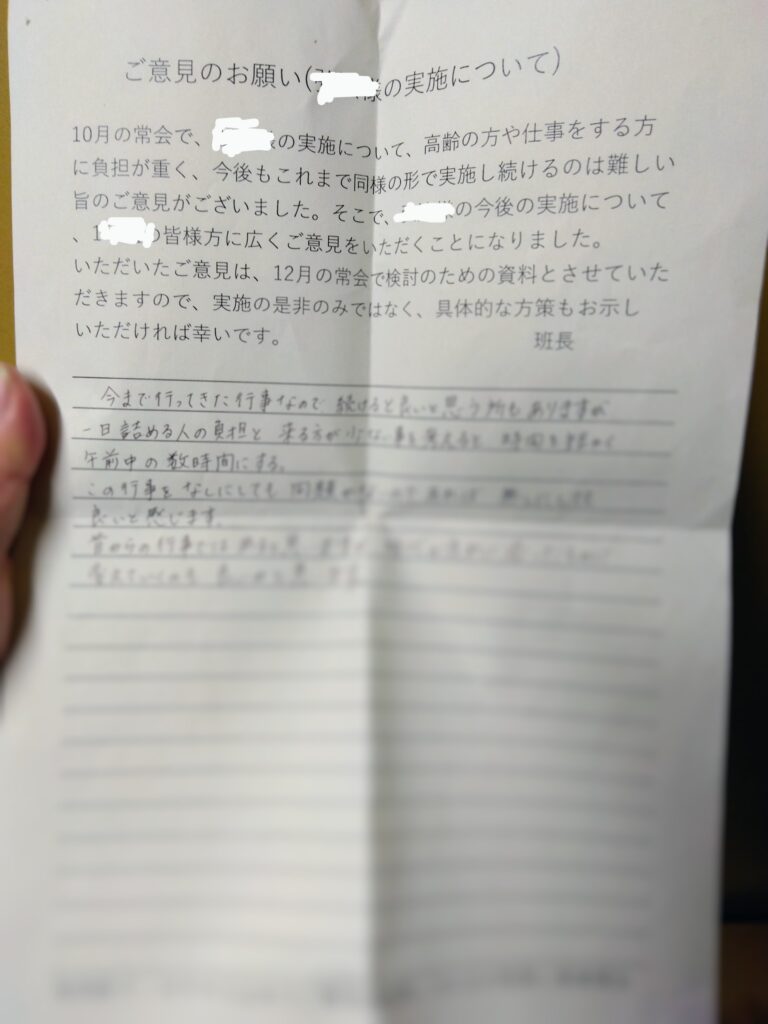 ご意見のお願い(様の実施について)
10月の常会で、の実施について、高齢の方や仕事をする方
に負担が重く、今後もこれまで同様の形で実施し続けるのは難しい
旨のご意見がございました。そこで、の今後の実施について
、1の皆様方に広くご意見をいただくことになりました。
いただいたご意見は、12月の常会で検討のための資料とさせていた
だきますので、実施の是非のみではなく、具体的な方策もお示し
いただければ幸いです。 班長
今まで行ってきた行事なので 続けると良いと思う所もありますが
一日詰める人の負担と 来る方が少ない事を考えると 時間を
午前中の数時間にする。
この行事を なしにしても 問題が
良いと感じます。
昔からの行事